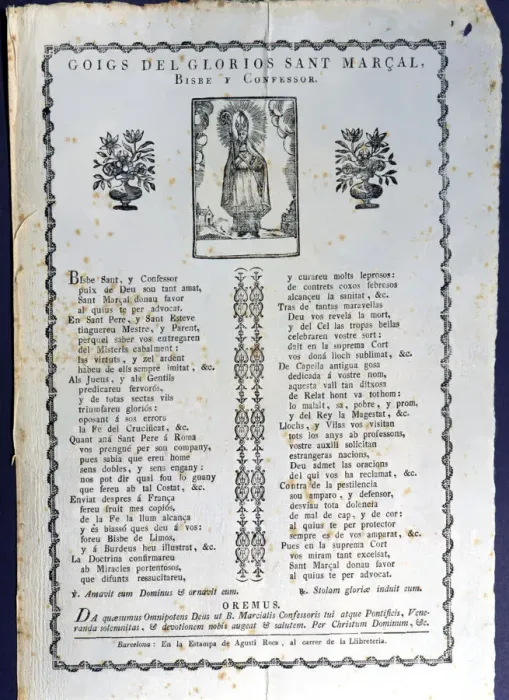 GOIGS DEL GLORIOS SANT MARÇAL,
BISBE Y CONFESSOR.
BIsbe Sant, y Confessor
puix de Deu sou tant amat,
Sant Marçal donau favor
al quius te per advocat.
En Sant Pere, y Sant Esteve
tinguereu Mestre, y Parent,
perquel saber vos entregaren
del Misteris cabalment:
las virtuts, y zel ardent
habeu de ells sempre imitat, &c.
Als Jueus, y als Gentils
predicareu fervorós,
y de totas sectas vils
triumfareu gloriós:
oposant á sos errors
la Fe del Crucificat, &c.
Quant aná Sant Pere á Roma
vos prengué per son company,
pues sabia que ereu home
sens dobles, y sens engany:
nos pot dir qual fou lo guany
que fereu ab tal Costat, &c.
Enviat despres á França
fereu fruit mes copiós,
de la Fe la llum alcança
y es biassó ques deu á vos:
foreu Bisbe de Limos,
y á Burdeus heu illustrat, &c.
La Doctrina confirmareu
ab Miracles portentosos,
que difunts ressucitareu,
y curareu molts leprosos:
de contrets coxos febresos
alcançeu la sanitat, &c.
Tras de tantas maravellas
Deu vos revelá la mort,
y del Cel las tropas bellas
celebraren vostre sort:
dalt en la suprema Cort
vos doná lloch sublimat, &c.
De Capella antigua gosa
dedicada á vostre nom,
aquesta vall tan ditxosa
de Relat hont va tothom:
lo malalt, sa, pobre, y prom,
y del Rey la Magestat, &c.
Llochs, y Vilas vos visitan
tots los anys ab professons,
vostre auxili solicitan
estrangeras nacions,
Deu admet las oracions
del qui vos ha reclamat, &c.
Contra de la pestilencia
sou amparo, y defensor,
desviau tota dolencia
de mal de cap, y de cor:
al quius te per protector
sempre es de vos amparat, &c.
Pues en la suprema Cort
vos miram tant excelsat,
Sant Marçal donau favor
al quius te per advocat.
℣. Amavit eum Dominus & ornavit eum. ℟. Stolam gloriæ induit eum.
OREMUS.
DA quæsumus Omnipotens Deus ut B. Marcialis Confessoris tui atque Pontificis, Vene-
randa solemnitas, & devotionem nobis augeat & salutem. Per Christum Dominum, &c.
Barcelona: En la Estampa de Agustí Roca, al carrer de la Llibreteria.